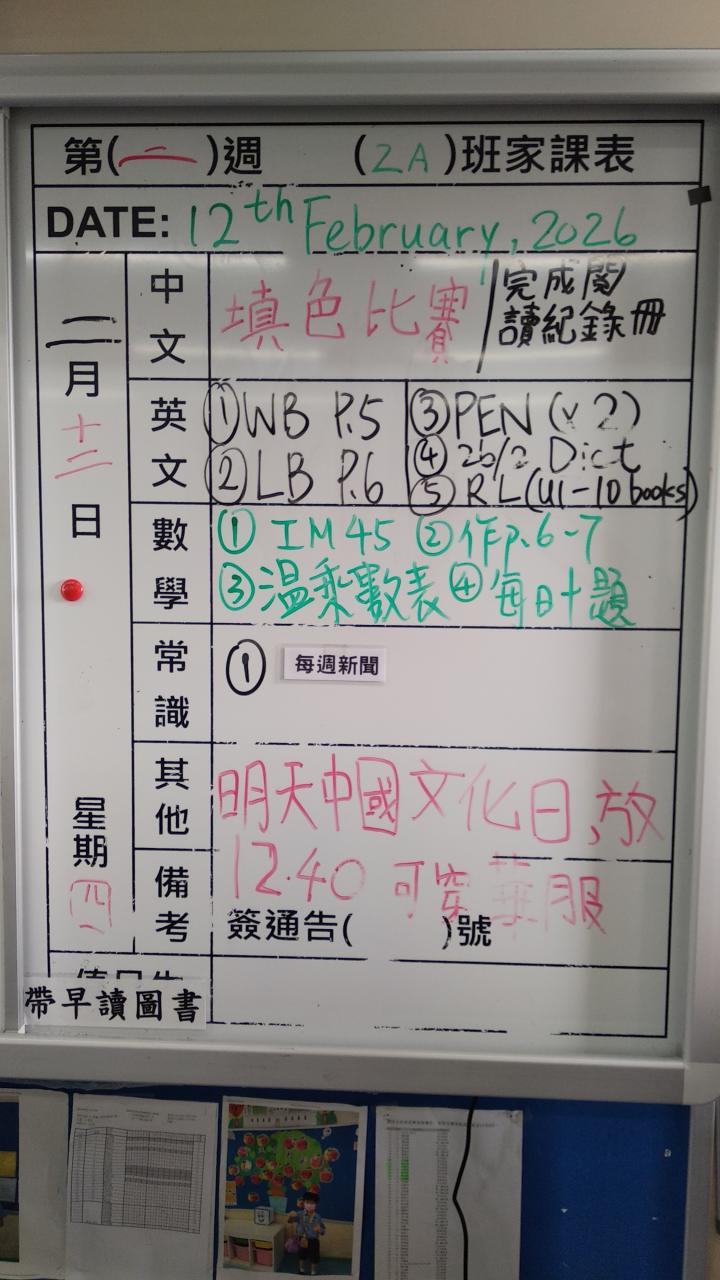 第(二)週 (2A)班家課表
DATE: 12th February, 2026
二月十二日
星期四
中文
填色比賽
完成閱
讀紀錄冊
英文
①WB P.5 ③PEN (x2)
②LB P.6 ④2b/2 Dict
⑤RL(U1-10books)
數學
① IM 45 ②作p.6-7
③温乘數表 ④每日十題
常識
① 每週新聞
其他
明天中國文化日、放
備考
12.40 可穿華服
簽通告( )號
帶早讀圖書